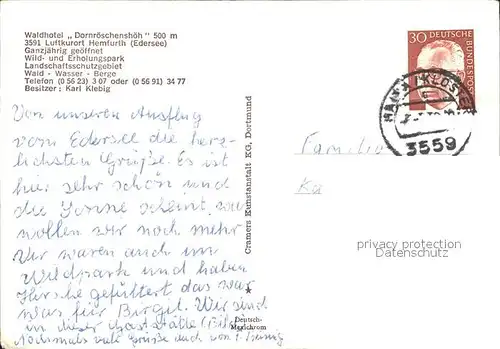 Waldhotel „Dornröschenshöh" 500 m
3591 Luftkurort Hemfurth (Edersee)
Ganzjährig geöffnet
Wild- und Erholungspark
Landschaftsschutzgebiet
Wald - Wasser - Berge
Telefon (0 56 23) 3 07 oder (0 56 91) 34 77
Besitzer: Karl Klebig
Von unserem Ausflug
vom Edersee die herz-
lichsten Grüße. Es ist
hier sehr schön und
die Sonne scheint, was
wollen wir noch mehr
Wir waren auch im
Wildpark und haben
Hirsche gefüttert das war
was für Birgit. Wir sind
in dieser Gaststätte (Bild)
Nochmals viele Grüße auch von
Cramers Kunstanstalt KG, Dortmund
Deutsch-
Mexichrom
30
DEUTSCHE BUNDESPOST
HAINA (KLOSTER)
3559
Familie
Ka
privacy protection
Datenschutz